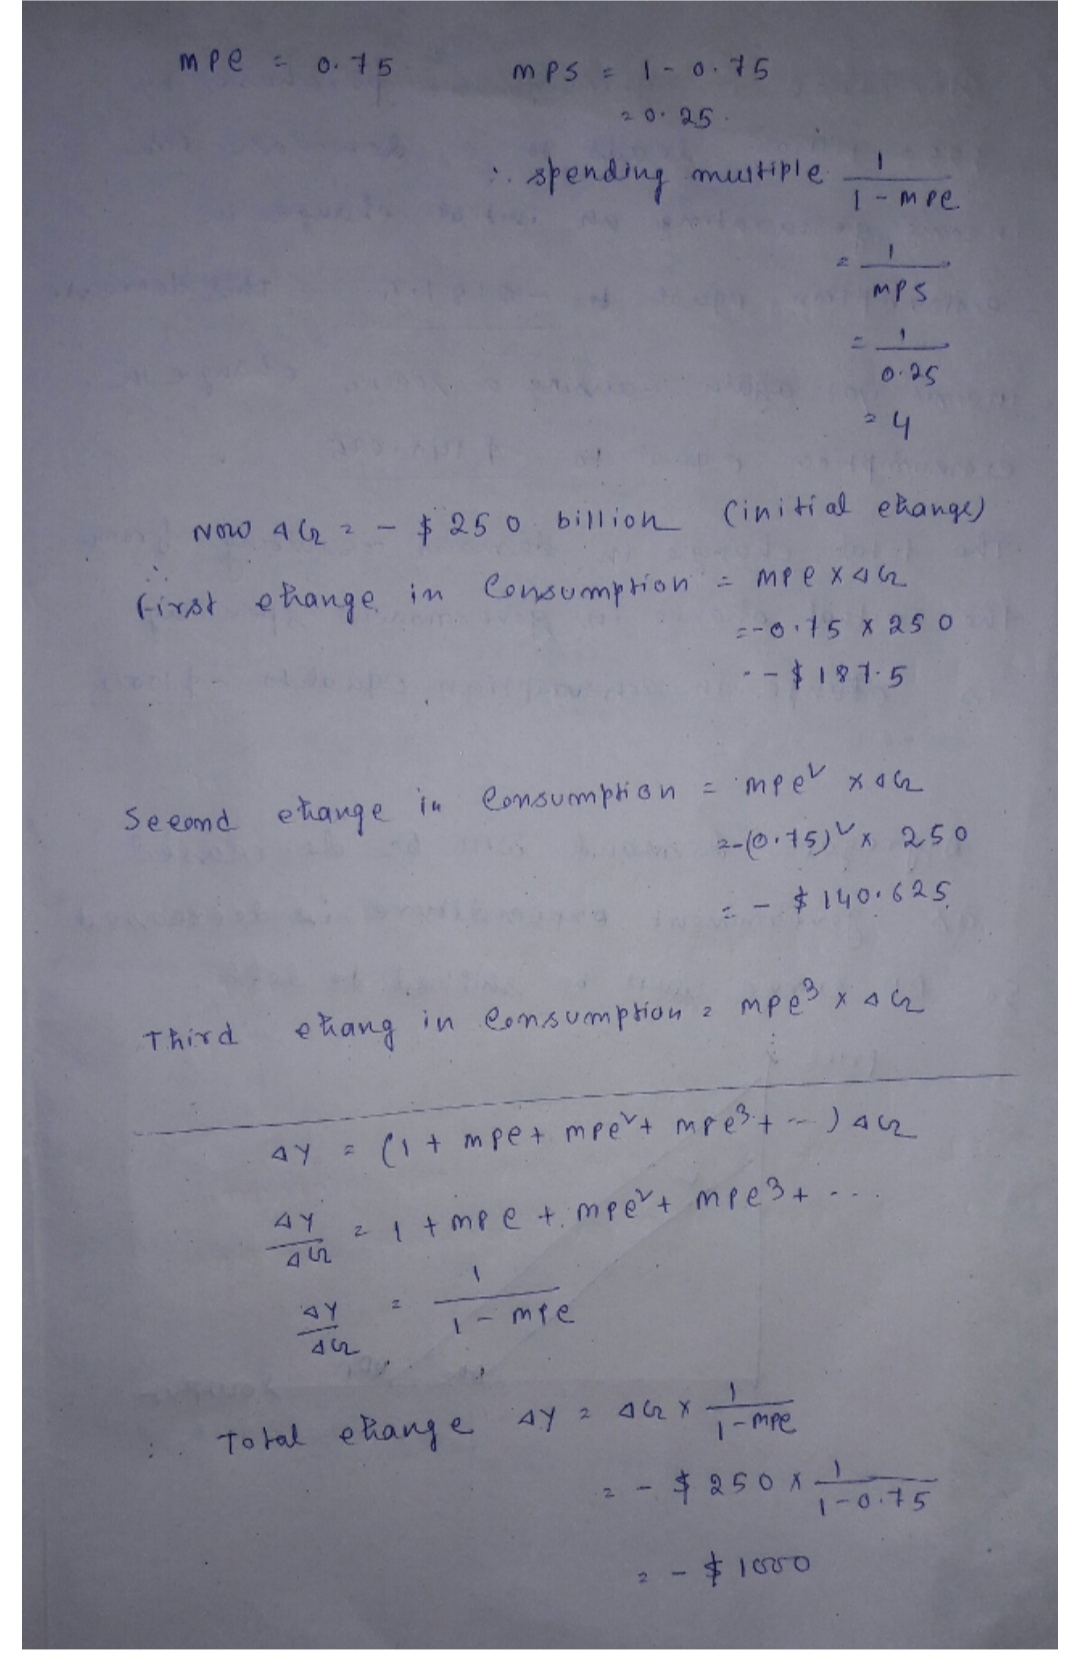 mpc = 0.75    mps = 1 - 0.75
= 0.25
∴ spending multiple 1/(1 - mpc)
= 1/mps
= 1/0.25
= 4
Now ΔG = - $ 250 billion (initial change)
∴ First change in Consumption = mpc x ΔG
= -0.75 x 250
= - $ 187.5
Second change in Consumption = mpc² x ΔG
= -(0.75)² x 250
= - $ 140.625
Third chang in Consumption = mpc³ x ΔG
ΔY = (1 + mpc + mpc² + mpc³ + --- ) ΔG
ΔY/ΔG = 1 + mpc + mpc² + mpc³ + ...
ΔY/ΔG = 1/(1 - mpc)
∴ Total change ΔY = ΔG x 1/(1 - mpc)
= - $ 250 x 1/(1 - 0.75)
= - $ 1000